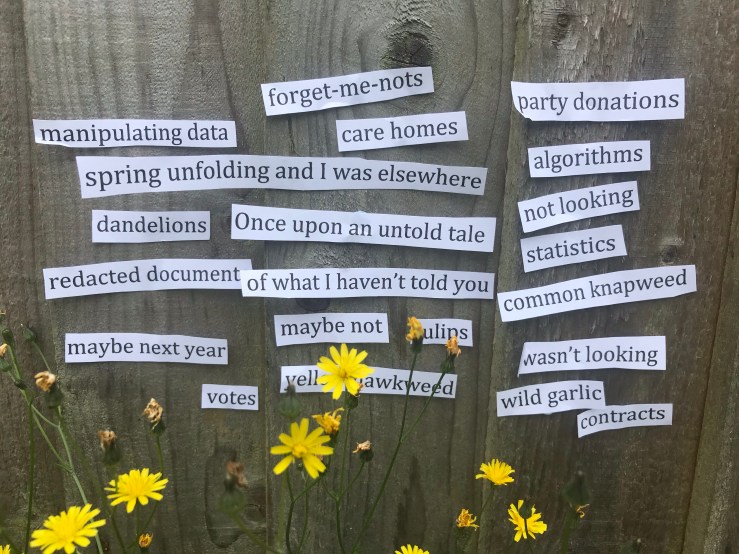 forget-me-nots
party donations
manipulating data
care homes
spring unfolding and I was elsewhere
algorithms
dandelions
Once upon an untold tale
not looking
statistics
redacted document
of what I haven't told you
common knapweed
maybe not
ulips
maybe next year
wasn't looking
yell awkweed
votes
wild garlic
contracts